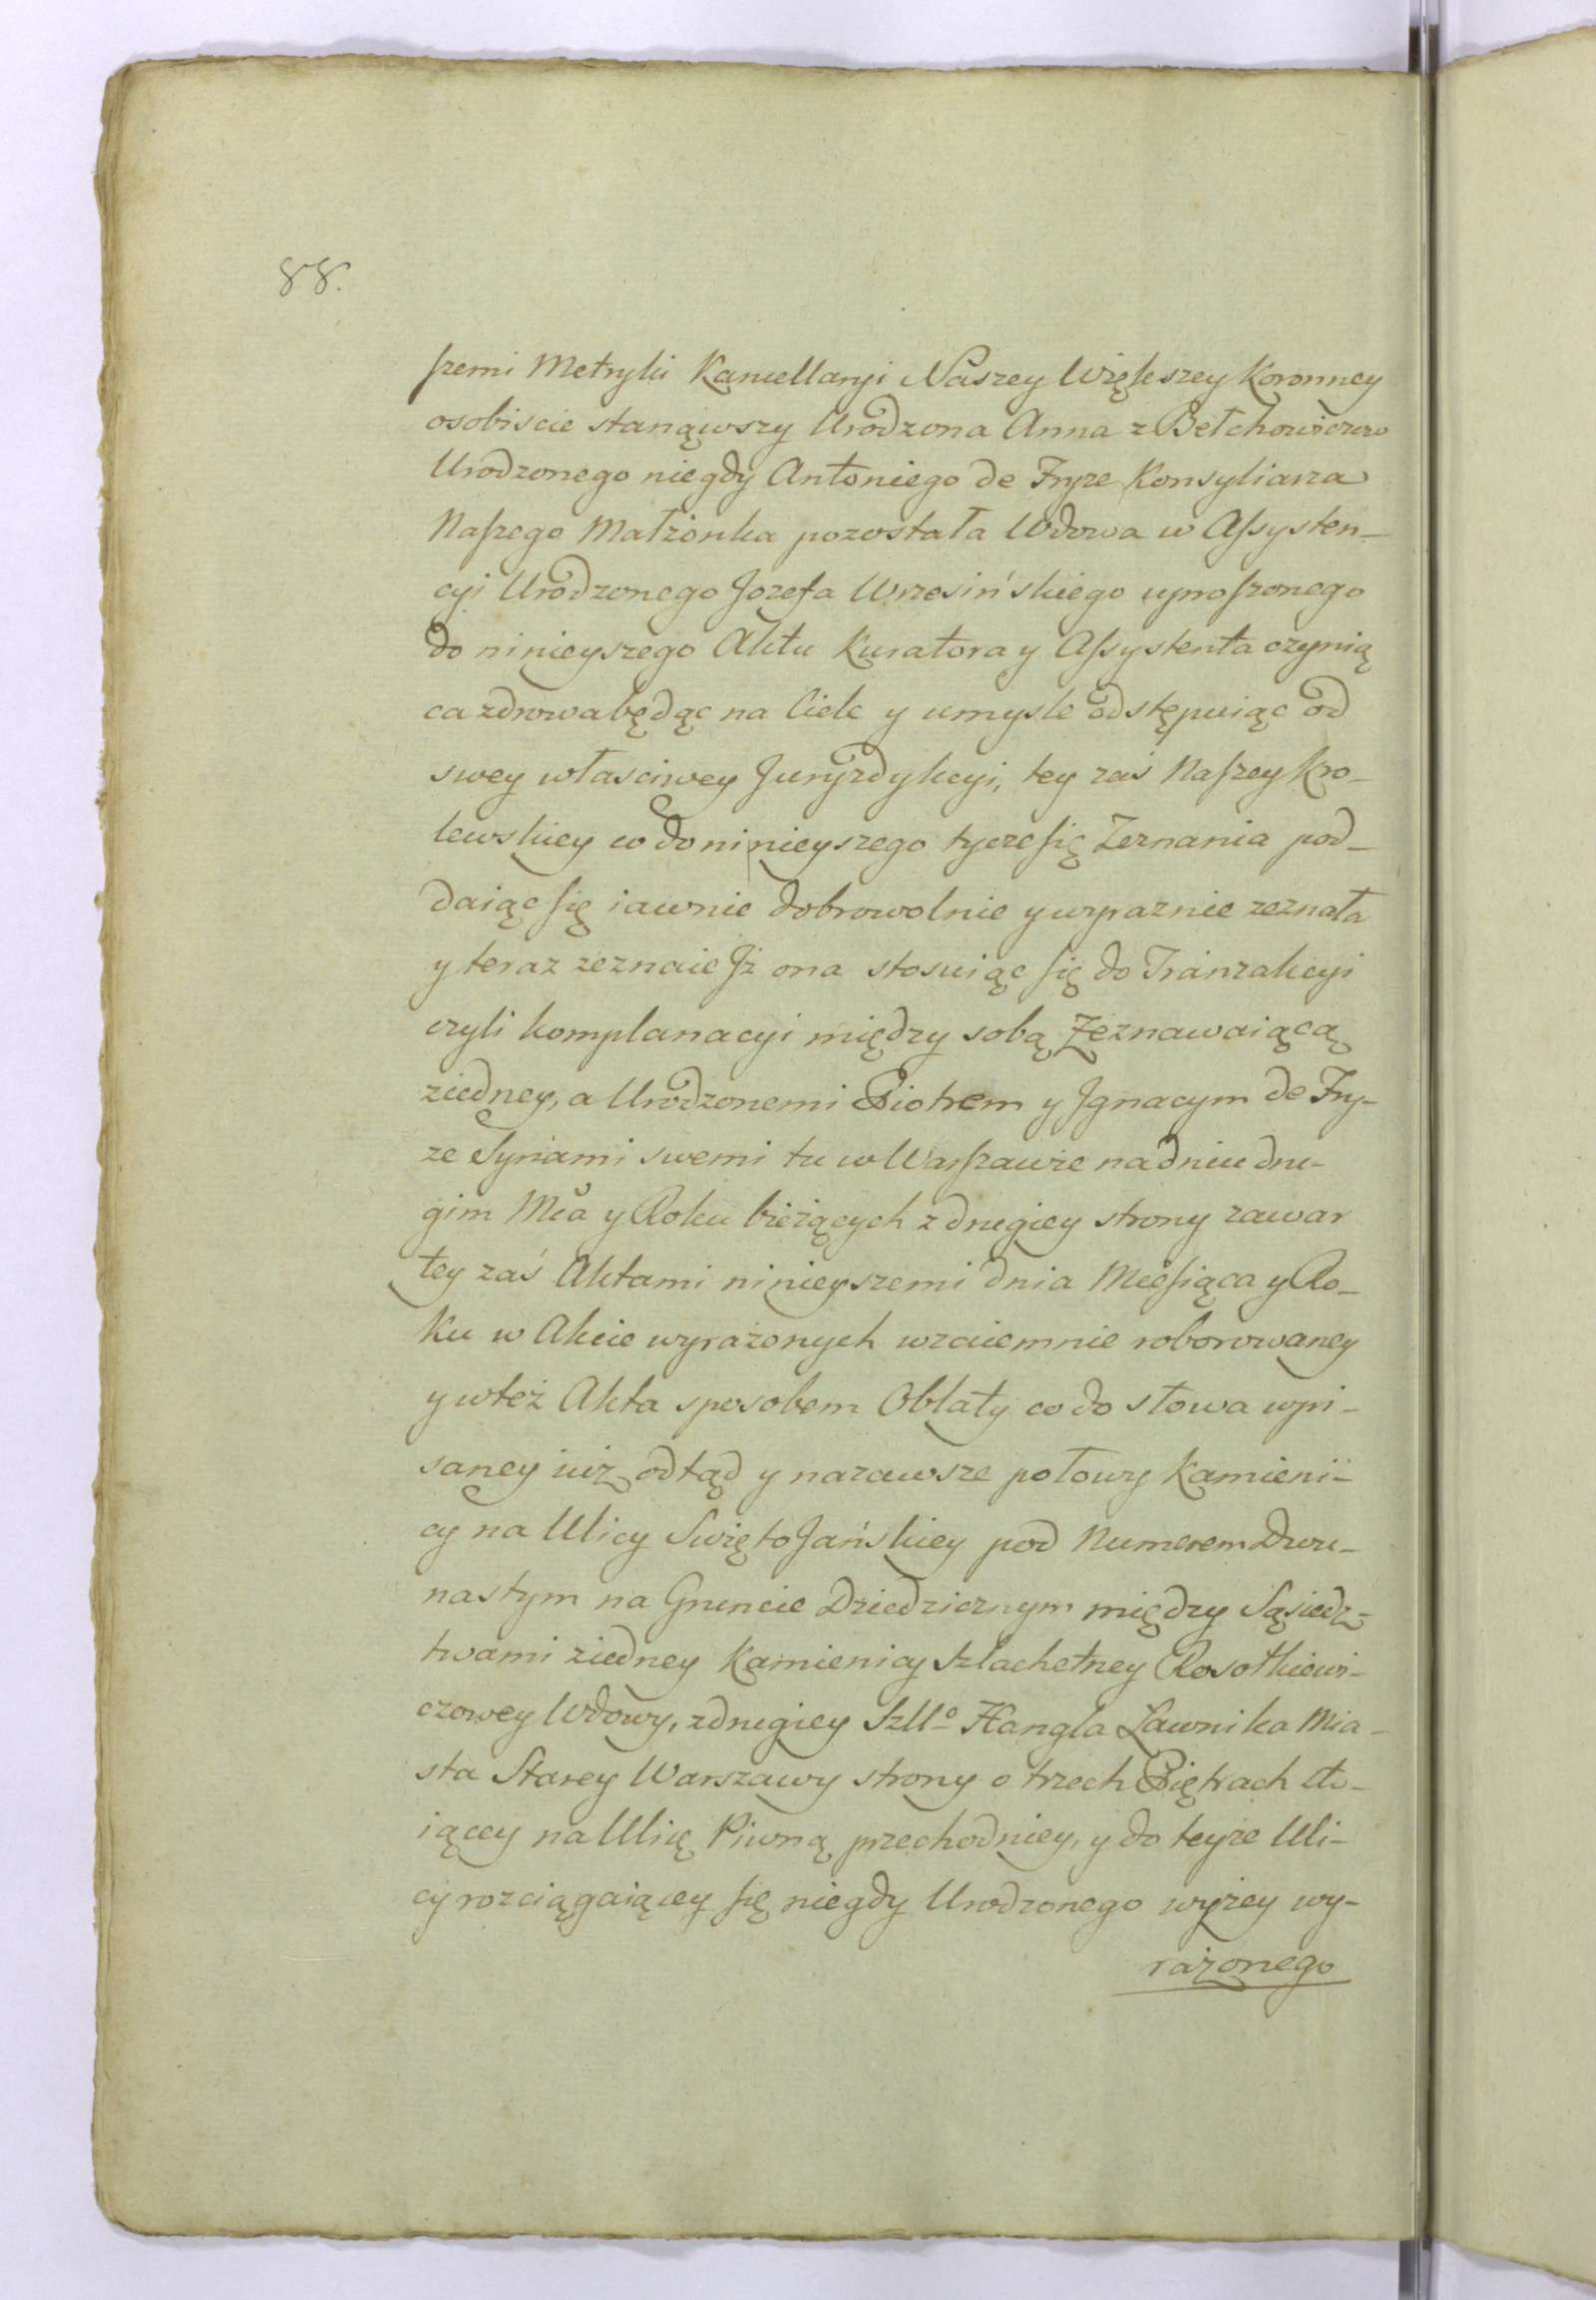 88.
szemi Metryki Kancellaryi Naszey Większey Koronney
osobiscie stanąwszy Urodzona Anna z Bełchowiczow
Urodzonego niegdy Antoniego de Fryze Konsyliarza
Naszego Małżonka pozostała Wdowa w Assysten-
cyi Urodzonego Jozefa Wrzesińskiego uproszonego
do ninieyszego Aktu Kuratora y Assystenta czynią
ca zdrowa będąc na Ciele y umysle odstępuiąc od
swey własciwey Juryzdykcyi, tey zaś Naszey Kro-
lewskiey co do ninieyszego tycze się Zeznania pod-
daiąc się iawnie dobrowolnie y wyraznie zeznała
y teraz zeznaie Jż ona stosuiąc się do Tranzakcyi
czyli komplanacyi między sobą Zeznawaiącą
ziedney, a Urodzonemi Piotrem y Jgnacym de Fry-
ze Synami swemi tu w Warszawie na dniu dru-
gim Mca y Roku bieżących z drugiey strony zawar
tey zaś Aktami ninieyszemi dnia Miesiąca y Ro-
ku w Akcie wyrażonych wzaiemnie roborowaney
y wteż Akta sposobem Oblaty co do słowa wpi-
saney iuż odtąd y nazawsze połowy Kamieni-
cy na Ulicy Swięto Jańskiey pod Numerem Dwu-
nastym na Gruncie Dziedzicznym między Sąsiedz-
twami ziedney Kamienicy Szlachetney Rosołkiewi-
czowey Wdowy, z drugiey Szllo Hangla Ławnika Mia-
sta Starey Warszawy strony o trzech Piętrach sto-
iącey na Ulicę Piwną przechodniey, y do teyże Uli-
cy rozciągaiącey się niegdy Urodzonego wyżey wy-
rażonego